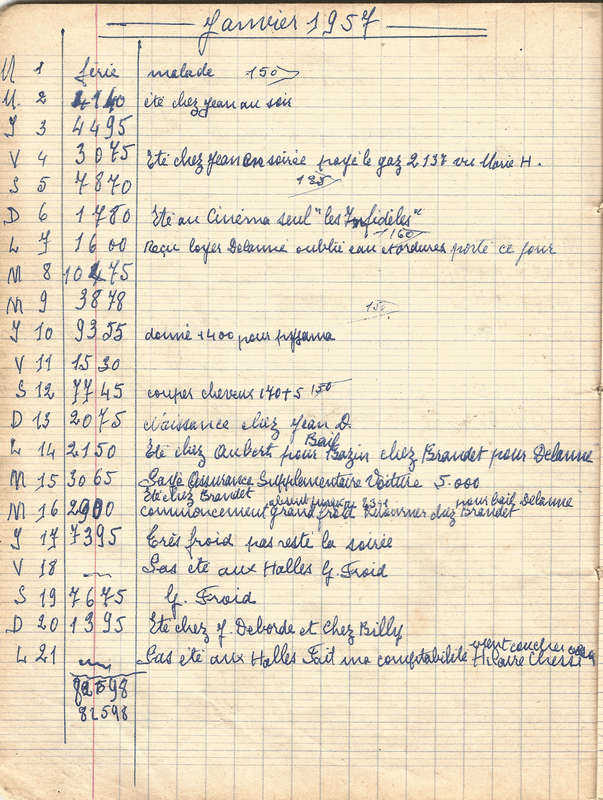 Janvier 1957
M 1 férié malade 150
M. 2 4140 été chez Jean au soir
J 3 4495
V 4 3075 Eté chez Jean en soirée payé le gaz 2137 vu Marie H.
S 5 7870 185
D 6 1780 Eté au Cinéma seul "les Infidèles"
L 7 1600 Reçu loyer Delanne oublié eau et ordures porté ce jour 1160
M 8 10475
M 9 3878 150
J 10 9355 donné 1400 pour pyjama
V 11 1530
S 12 7745 couper cheveux 170+5 150
D 13 2075 naissance chez Jean D.
Bail
L 14 2150 Eté chez Aubert pour Bazin chez Brandet pour Delanne
M 15 3065 Payé Assurance Supplementaire Voiture 5.000
Eté chez Brandet pour bail Delanne
M 16 2900 commencement grand froid Retourner chez Brandet
J 17 7395 Très froid pas resté la soirée
V 18 Pas été aux Halles G. Froid
S 19 7675 G. Froid
D 20 1395 Eté chez J. Deborde et Chez Billy
vient coucher
L 21 Pas été aux Halles Fait ma comptabilité Hilaire
82598
82598